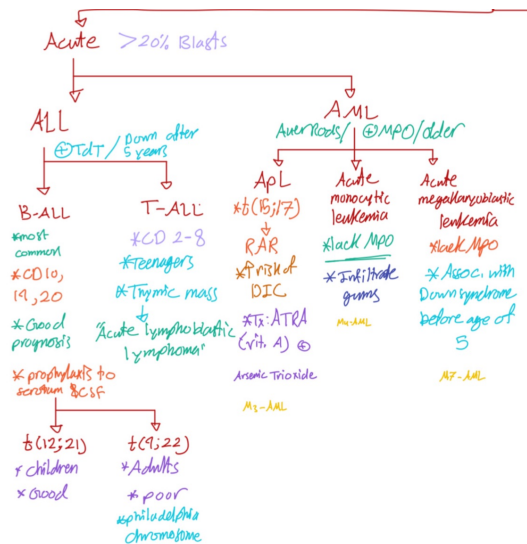 Acute >20% Blasts
ALL
⊕TdT / Down after
5 years
B-ALL
*most
common
*CD10,
19, 20
*Good
prognosis
*prophylaxis to
scrotum & CSF
t(12;21)
*children
*Good
t(9;22)
*Adults
*poor
*philadelphia
chromosome
T-ALL
*CD 2-8
*Teenagers
*Thymic mass
"Acute lymphoblastic
lymphoma"
AML
Auer Rods/ ⊕MPO/older
APL
*t(15;17)
RAR
*↑risk of
DIC
*Tx: ATRA
(vit. A) ⊕
Arsenic Trioxide
M3-AML
Acute
monocytic
leukemia
*lack MPO
*Infiltrate
gums
Acute
megakaryoblastic
leukemia
*lack MPO
*Assoc. with
Down syndrome
before age of
5
M7-AML